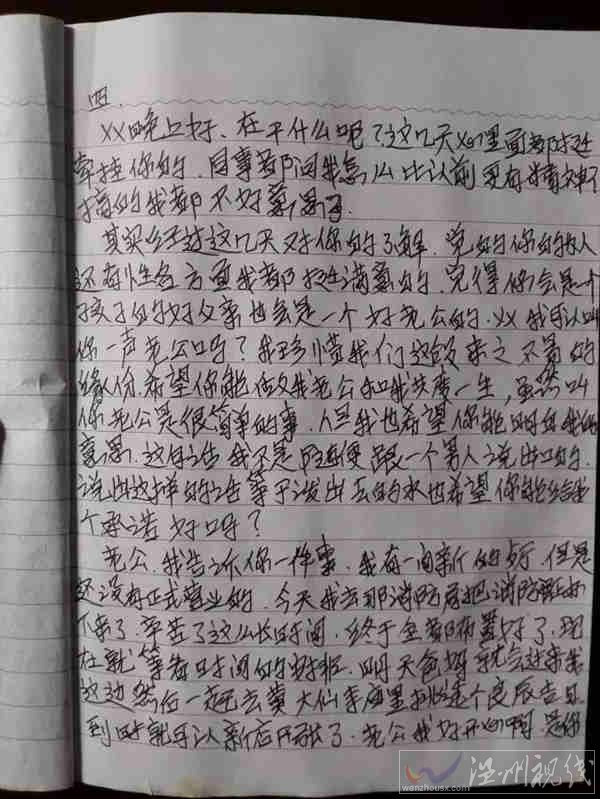 四.
XX晚上好、在干什么呢？这几天心里面都挺
牵挂你的、同事都问我怎么比以前更有精神了
搞的我都不好意思了.
其实经过这几天对你的了解、觉的你的人
还有性各方面我都挺满意的、觉得你会是个
孩子的好父亲也会是一个好老公的、XX我可以叫
你一声老公吗？我珍惜我们这段来之不易的
缘份、希望你能做我老公和我共度一生，虽然叫
你老公是很简单的事、但我也希望你能明白我的
意思、这句话我不是随便跟一个男人说出口的、
说出这样的话等于泼出去的水也希望你能给我
个承诺好吗？
老公、我告诉你一件事、我有一间新的店、但是
还没有正式营业的、今天我去那消防局把消防证拆
下来了、辛苦了这么长时间、终于全都布置好了、现
在就等着时间的安排、明天爸妈就会过来我
这边然后一起去黄大仙李庙里挑选个良辰吉日
到时就可以新店开张了、老公我好开心啊、是你
温州视线
wenzhousx.com